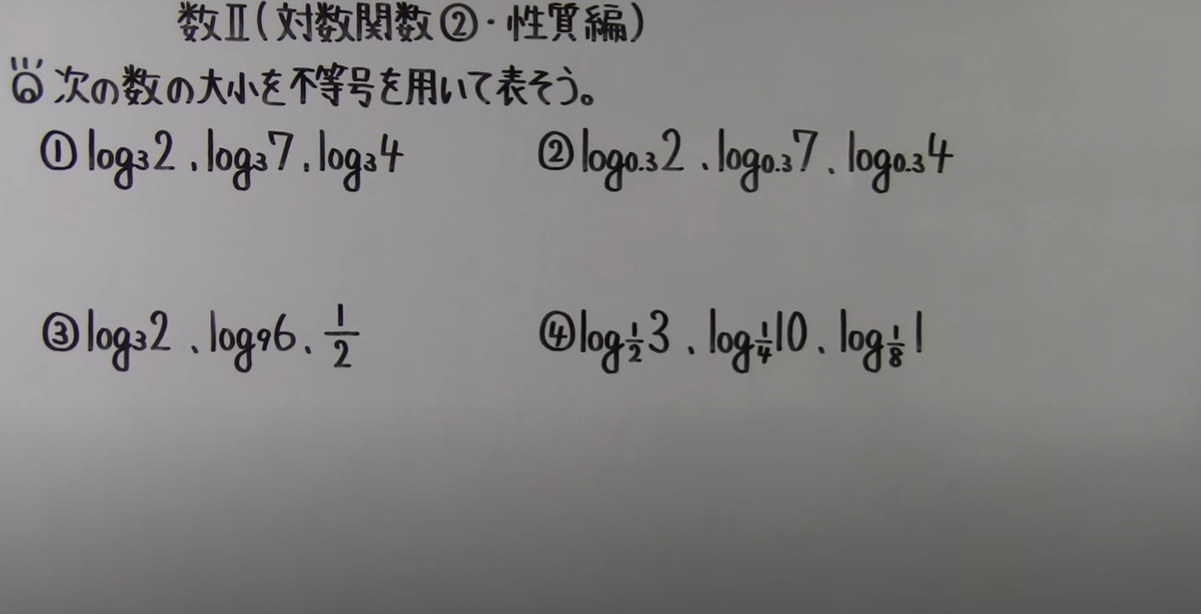 数Ⅱ(対数関数②・性質編)
次の数の大小を不等号を用いて表そう。
①log₃2、log₃7、log₃4 ②log₀.₃2、log₀.₃7、log₀.₃4
③log₃2、log₉6、1/2 ④log1/2 3、log1/4 10、log1/8 1